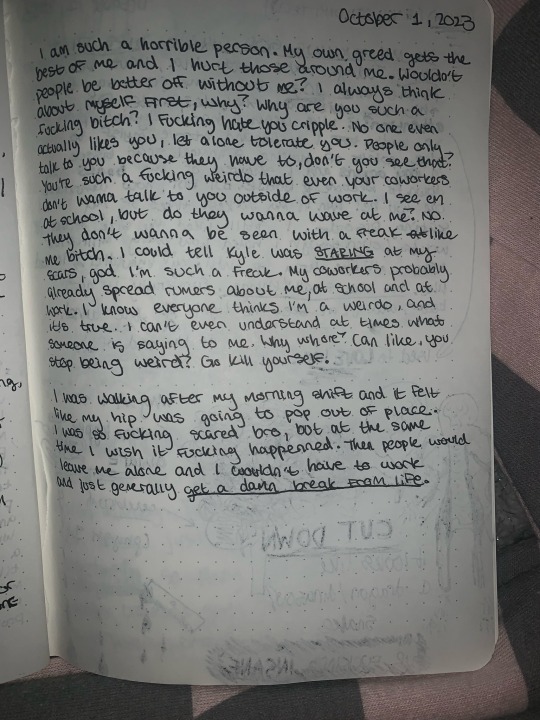 October 1, 2023
I am such a horrible person. My own greed gets the
best of me and I hurt those around me. Wouldn't
people be better off without me? I always think
about myself first, why? Why are you such a
fucking bitch? I fucking hate you cripple. No one even
actually likes you, let alone tolerate you. People only
talk to you because they have to, don't you see that?
You're such a fucking weirdo that even your coworkers
don't wanna talk to you outside of work. I see em
at school, but do they wanna wave at me? No.
They don't wanna be seen with a freak like
me bitch. I could tell Kyle was STARING at my
scars, god I'm such a freak. My coworkers probably
already spread rumers about me, at school and at
work. I know everyone thinks I'm a weirdo, and
it's true. I can't even understand at times what
someone is saying to me. Why whore? Can like, you
stop being weird? Go kill yourself.
I was walking after my morning shift and it felt
like my hip was going to pop out of place.
I was so fucking scared bro, but at the same
time I wish it fucking happenned. Then people would
leave me alone and I wouldn't have to work
and just generally get a damn break from life.
CUT DOWN
INSANE